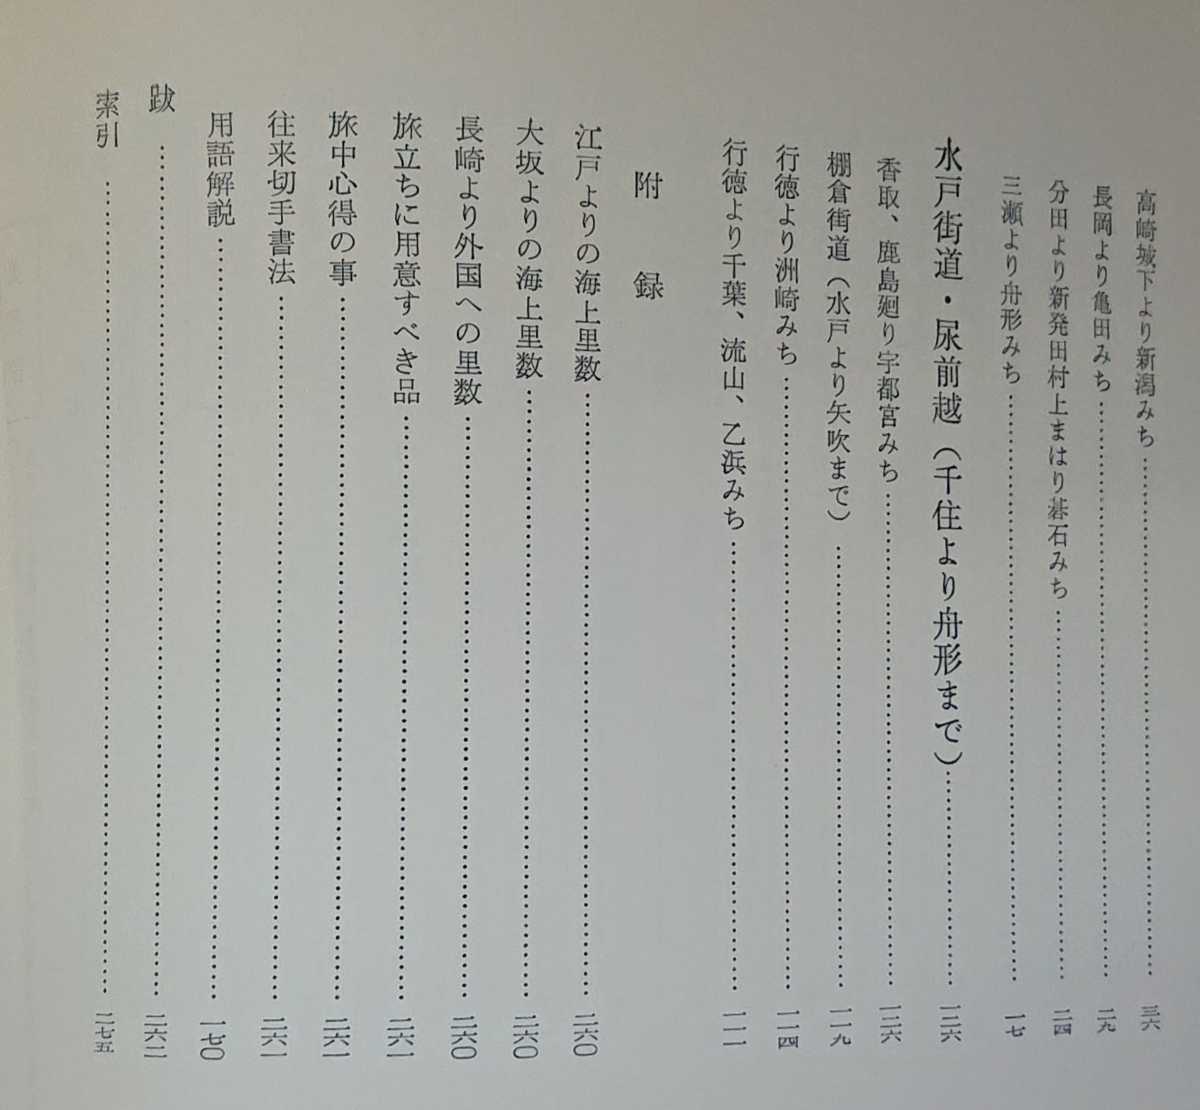 高崎城下より新潟みち……三六
長岡より亀田みち……二九
分田より新発田村上まはり碁石みち……二四
三瀬より舟形みち……一七
水戸街道・尿前越（千住より舟形まで）……一三六
香取、鹿島廻り宇都宮みち……一三六
棚倉街道（水戸より矢吹まで）……一一九
行徳より洲崎みち……一一四
行徳より千葉、流山、乙浜みち……一一一
附録
江戸よりの海上里数……二六〇
大坂よりの海上里数……二六〇
長崎より外国への里数……二六〇
旅立ちに用意すべき品……二六一
旅中心得の事……二六一
往来切手書法……二六一
用語解説……一七〇
跋……二六二
索引……二七五